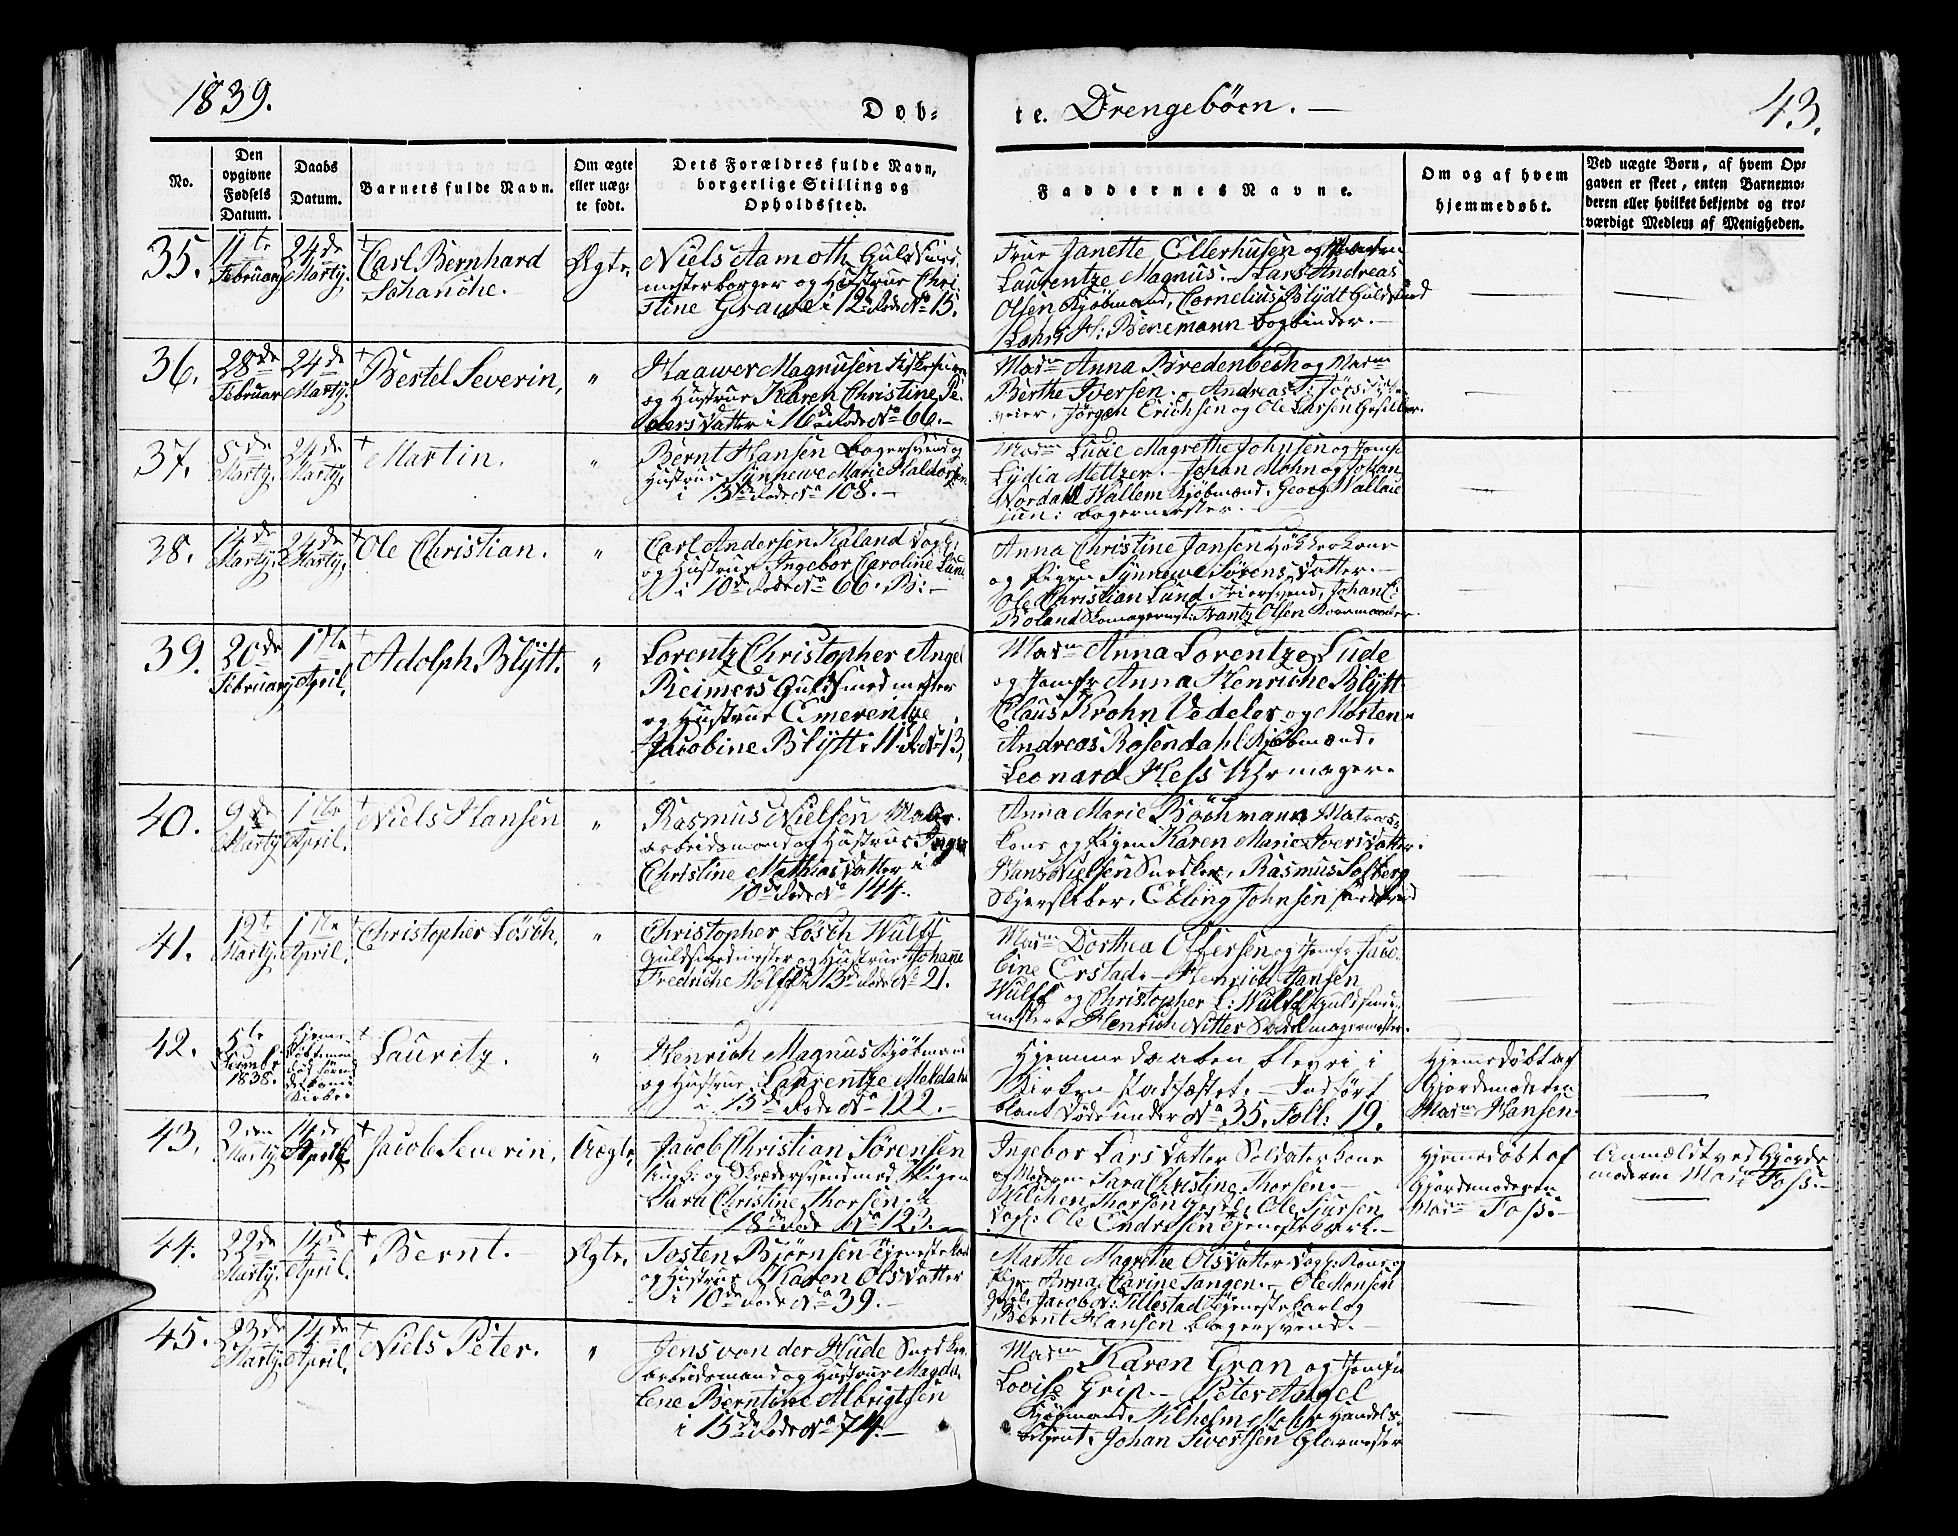 1839.
Døb-
te. Drengebørn. —
43.
No.
Den opgivne Fødsels Datum.
Daabs Datum.
Barnets fulde Navn.
Om ægte eller uægte født.
Dets Forældres fulde Navn, borgerlige Stilling og Opholdssted.
Faddernes Navne.
Om og af hvem hjemmedøbt.
Ved uægte Børn, af hvem Opgaven er skeet, enten Barnemoderen eller hvilket bekjendt og troværdigt Medlem af Menigheden.
35.
11te Februar
24de Martij.
Carl Bernhard
Schanche.
Ægte.
Niels Aamoth Guldsme-
mesterborger og Hustrue Chri-
stine Grawe i 12te Rode No 15.
Frue Janette Ellerhusen og
Laurentze Magnus. Lars Andreas
Olsen Kjøbmand, Cornelius Blydt Guldsmed
H: Benemann Bogbinder.
36.
28de Februar
24de Martij.
Bestel Severin,
"
Haawer Magnusen
og Hustrue Karen Christine Pe-
ders Datter i 16de Rode No 66.
Madm Anna Bredenbech og Madm
Berthe Iversen. Andreas
Jørgen Erichsen og Ole Larsen
37.
5de Martij.
24de Martij.
Martin.
"
Bernt Hansen Bagersvend og
Hustrue Synnewe Marie Haldorsen
i 15de Rode No 108.
Madm Lucie Magrethe Johnsen og Jomf
Lydia Meltzer. Johan Mohn og Johan
Nordahl Wallem Kjøbmænd, Georg Wallace
jun: Bagermester.
38.
14de Martij.
24de Martij.
Ole Christian.
"
Carl Andersen Kaland Dagk:
og Hustrue Ingebor Caroline Lund
i 10de Rode No 66. B:
Anna Christine Jansen
og Pigen Synnewe Sørens Datter.
Ole Christian Lund, Johan C:
Roland Skomagermst: Frantz Olsen
39.
20de Februar
1ste April.
Adolph Blÿtt.
"
Lorentz Christopher Angel
Reimers Guldsmedmester
og Hustrue Emerentze
Jacobine Blÿtt i 11te R No 13,
Madm Anna Lorentze Lude
og Jomfr Anna Henriche Blÿtt
Claus Krohn Vedeler og Morten
Andreas Rosendahl Kjøbmænd,
Leonard Hess Uhrmager.
40.
9de Martij
1ste April.
Niels Hansen
"
Rasmus Nielsen
arbeidsmand og Hustrue
Christine Mathias Datter i
10de Rode No 144.
Anna Marie Bøchmann Matros
kone og Pigen Karen Marie Ivers Datter.
Hans Nielsen Snedker, Rasmus Solberg
Ebling Johnsen
41.
19te Martij.
1ste April.
Christopher Lösch,
"
Christopher Lösch Wulff
Guldsmedmester og Hustrue Johane
Fredriche Wolff i 13de Rode No 21.
Madm Dorthea Offersen og Jomfr Jaco-
bine Erstad. Henrich Jansen
Wulff og Christopher L: Wulff Guldsme-
mestere Henrich Nitter Sadelmagermester.
42.
5te Decembr 1838.
Lauritz.
"
Henrich Magnus Kjøbmand
og Hustrue Laurentze Meldahl
i 15de Rode No 122.
Hjemmedaaben bleven i
Kirken stadfæstet. Indført
blant Døde under No 35. Foll: 19.
Hjemedøbt af
Gjordemoderen
Madm Hansen
43.
2den Martij.
14de April
Jacob Severin,
Uægte,
Jacob Christian Sørensen
Ungk: og Skrædersvend med Pigen
Sara Christine Thorsen. i
18de Rode No 123.
Ingebor Lars Datter Soldaterkone
af Moderen Sara Christine Thorsen.
Wilchen Thorsen Ole Siursen
Dagk: Ole Endresen Tjenestekarl.
Hjemedøbt af
Gjordemoderen
Madm Foss.
Anmeldt ved Gjorde-
moderen Madm Foss.
44.
22de Martij.
14de April.
Bernt.
Ægte,
Tosten Bjørnsen Tjenestekarl
og Hustrue Karen Ols Datter
i 10de Rode No 39.
Marthe Magrethe Ols Datter Dagk: Kone og
Pige Anna Carine Sangen. Ole Monsen
Jacob N: Tillestad Tjenestekarl og
Bernt Hansen Bagersvend.
45.
23de Martij.
14de April.
Niels Peter.
"
Jens von der Hude
arbeidsmand og Hustrue Magda-
lene Berntine Albrigtsen
i 15de Rode No 74.
Madm Karen Gran og Jomfru
Lovise Grip. Peter Angel
Kjøbmand, Wilhelm Handels-
betjent, Johan Sivertsen Glarmester